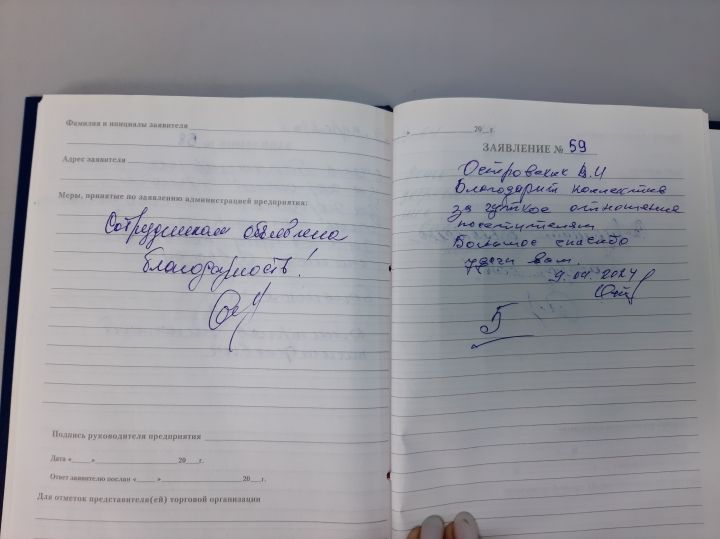 Фамилия и инициалы заявителя
Адрес заявителя
Меры, принятые по заявлению администрацией предприятия:
Сотрудникам объявлена
благодарность!
Подпись руководителя предприятия
Дата «____»____ 20__г.
Ответ заявителю послан «____»____ 20__г.
Для отметок представителя(ей) торговой организации
«____ 20__г.
ЗАЯВЛЕНИЕ № 59
Островских В.И
Благодарит коллектив
за чуткое отношение
посетителям
Большое спасибо
удачи вам.
9.09.2024
5